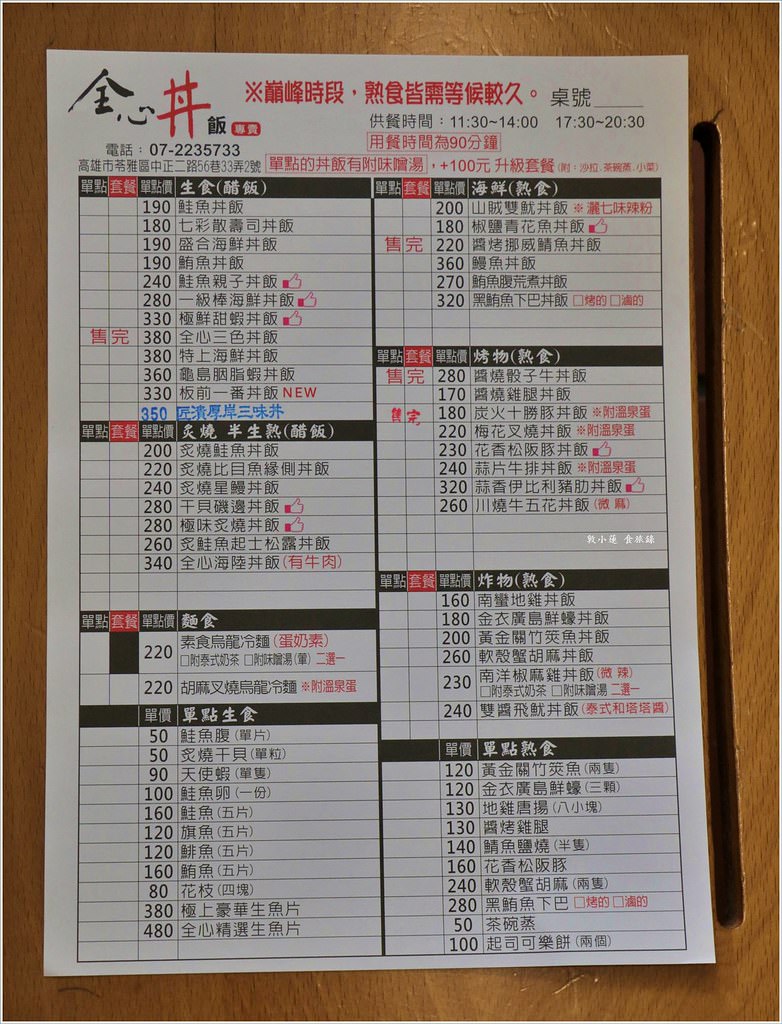 全心丼飯 專賣
※巔峰時段，熟食皆需等候較久。 桌號
供餐時間：11:30~14:00 17:30~20:30
用餐時間為90分鐘
電話：07-2235733
高雄市苓雅區中正二路56巷33弄2號 單點的丼飯有附味噌湯，+100元 升級套餐(附：沙拉.茶碗蒸.小菜)
單點 套餐 單點價 生食(醋飯)
190 鮭魚丼飯
180 七彩散壽司丼飯
190 盛合海鮮丼飯
190 鮪魚丼飯
240 鮭魚親子丼飯
280 一級棒海鮮丼飯
330 極鮮甜蝦丼飯
售完 380 全心三色丼飯
380 特上海鮮丼飯
360 龜島胭脂蝦丼飯
330 板前一番丼飯 NEW
350 匠漬厚岸三味丼
單點 套餐 單點價 炙燒 半生熟(醋飯)
200 炙燒鮭魚丼飯
220 炙燒比目魚緣側丼飯
240 炙燒星鰻丼飯
280 干貝磯邊丼飯
280 極味炙燒丼飯
260 炙鮭魚起士松露丼飯
340 全心海陸丼飯(有牛肉)
單點 套餐 單點價 麵食
220 素食烏龍冷麵(蛋奶素)
□附泰式奶茶 □附味噌湯(葷) 二選一
220 胡麻叉燒烏龍冷麵 ※附溫泉蛋
單價 單點生食
50 鮭魚腹(單片)
50 炙燒干貝(單粒)
90 天使蝦(單隻)
100 鮭魚卵(一份)
160 鮭魚(五片)
120 旗魚(五片)
120 鯡魚(五片)
160 鮪魚(五片)
80 花枝(四塊)
380 極上豪華生魚片
480 全心精選生魚片
單點 套餐 單點價 海鮮(熟食)
200 山賊雙魷丼飯 ※灑七味辣粉
180 椒鹽青花魚丼飯
售完 220 醬烤挪威鯖魚丼飯
360 鰻魚丼飯
270 鮪魚腹荒煮丼飯
320 黑鮪魚下巴丼飯 □烤的 □滷的
單點 套餐 單點價 烤物(熟食)
售完 280 醬燒骰子牛丼飯
170 醬燒雞腿丼飯
售完 180 炭火十勝豚丼飯 ※附溫泉蛋
220 梅花叉燒丼飯 ※附溫泉蛋
230 花香松阪豚丼飯
240 蒜片牛排丼飯 ※附溫泉蛋
320 蒜香伊比利豬肋丼飯
260 川燒牛五花丼飯(微 麻)
敦小蓮 食旅錄
單點 套餐 單點價 炸物(熟食)
160 南蠻地雞丼飯
180 金衣廣島鮮蠔丼飯
200 黃金關竹筴魚丼飯
260 軟殼蟹胡麻丼飯
230 南洋椒麻雞丼飯(微 辣)
□附泰式奶茶 □附味噌湯 二選一
240 雙醬飛魷丼飯(泰式和塔塔醬)
單價 單點熟食
120 黃金關竹筴魚(兩隻)
120 金衣廣島鮮蠔(三顆)
130 地雞唐揚(八小塊)
130 醬烤雞腿
140 鯖魚鹽燒(半隻)
160 花香松阪豚
240 軟殼蟹胡麻(兩隻)
280 黑鮪魚下巴 □烤的 □滷的
50 茶碗蒸
100 起司可樂餅(兩個)